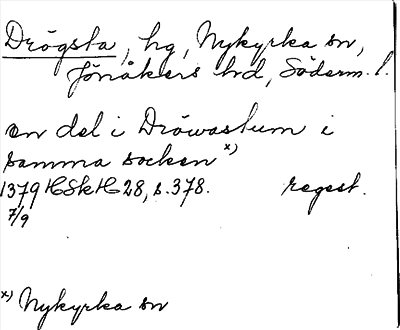 Drögsta, hg, Nykyrka sn,
Jönåkers hd, Söderm. l.
en del i Dröwastum i
samma socken x)
1379 HSkH 28, s. 378. regest.
7/9
x) Nykyrka sn